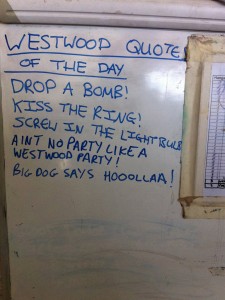 WESTWOOD QUOTE
OF THE DAY
DROP A BOMB!
KISS THE RING!
SCREW IN THE LIGHT BULB
AINT NO PARTY LIKE A
WESTWOOD PARTY!
BIG DOG SAYS HOOOLLAA!